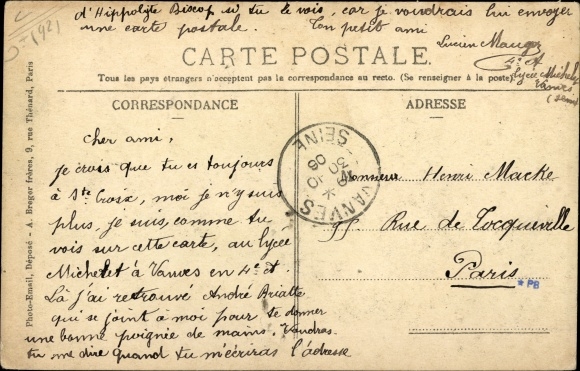 d'Hippolyte Biscop si tu le vois, car je voudrais lui envoyer
une carte postale. Ton petit ami
Lucien Mauger
4e A
Lycée Michelet
Vanves
(Seine)
CARTE POSTALE.
Tous les pays étrangers n'acceptent pas la correspondance au recto. (Se renseigner à la poste)
CORRESPONDANCE
ADRESSE
cher ami,
je crois que tu es toujours
à Ste Croix, moi je n'y suis
plus, je suis, comme tu
vois sur cette carte, au lycée
Michelet à Vanves en 4e A.
Là j'ai retrouvé André Brialte
qui se joint à moi pour te donner
une bonne poignée de mains. Voudras
tu me dire quand tu m'écriras l'adresse
Monsieur Henri Macke
95 Rue de Tocqueville
Paris
*PB
VANVES
SEINE
Photo-Email, Déposé - A. Breger frères, 9, rue Thénard, Paris